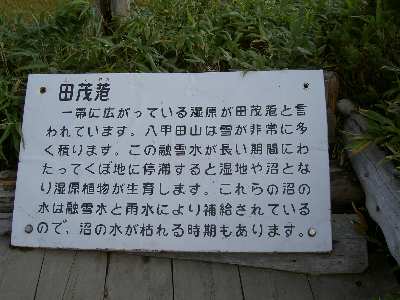 田茂萢
一帯に広がっている湿原が田茂萢と言
われています。八甲田山は雪が非常に多
く積ります。この融雪水が長い期間にわ
たってくぼ地に停滞すると湿地や沼とな
り湿原植物が生育します。これらの沼の
水は融雪水と雨水により補給されている
ので、沼の水が枯れる時期もあります。